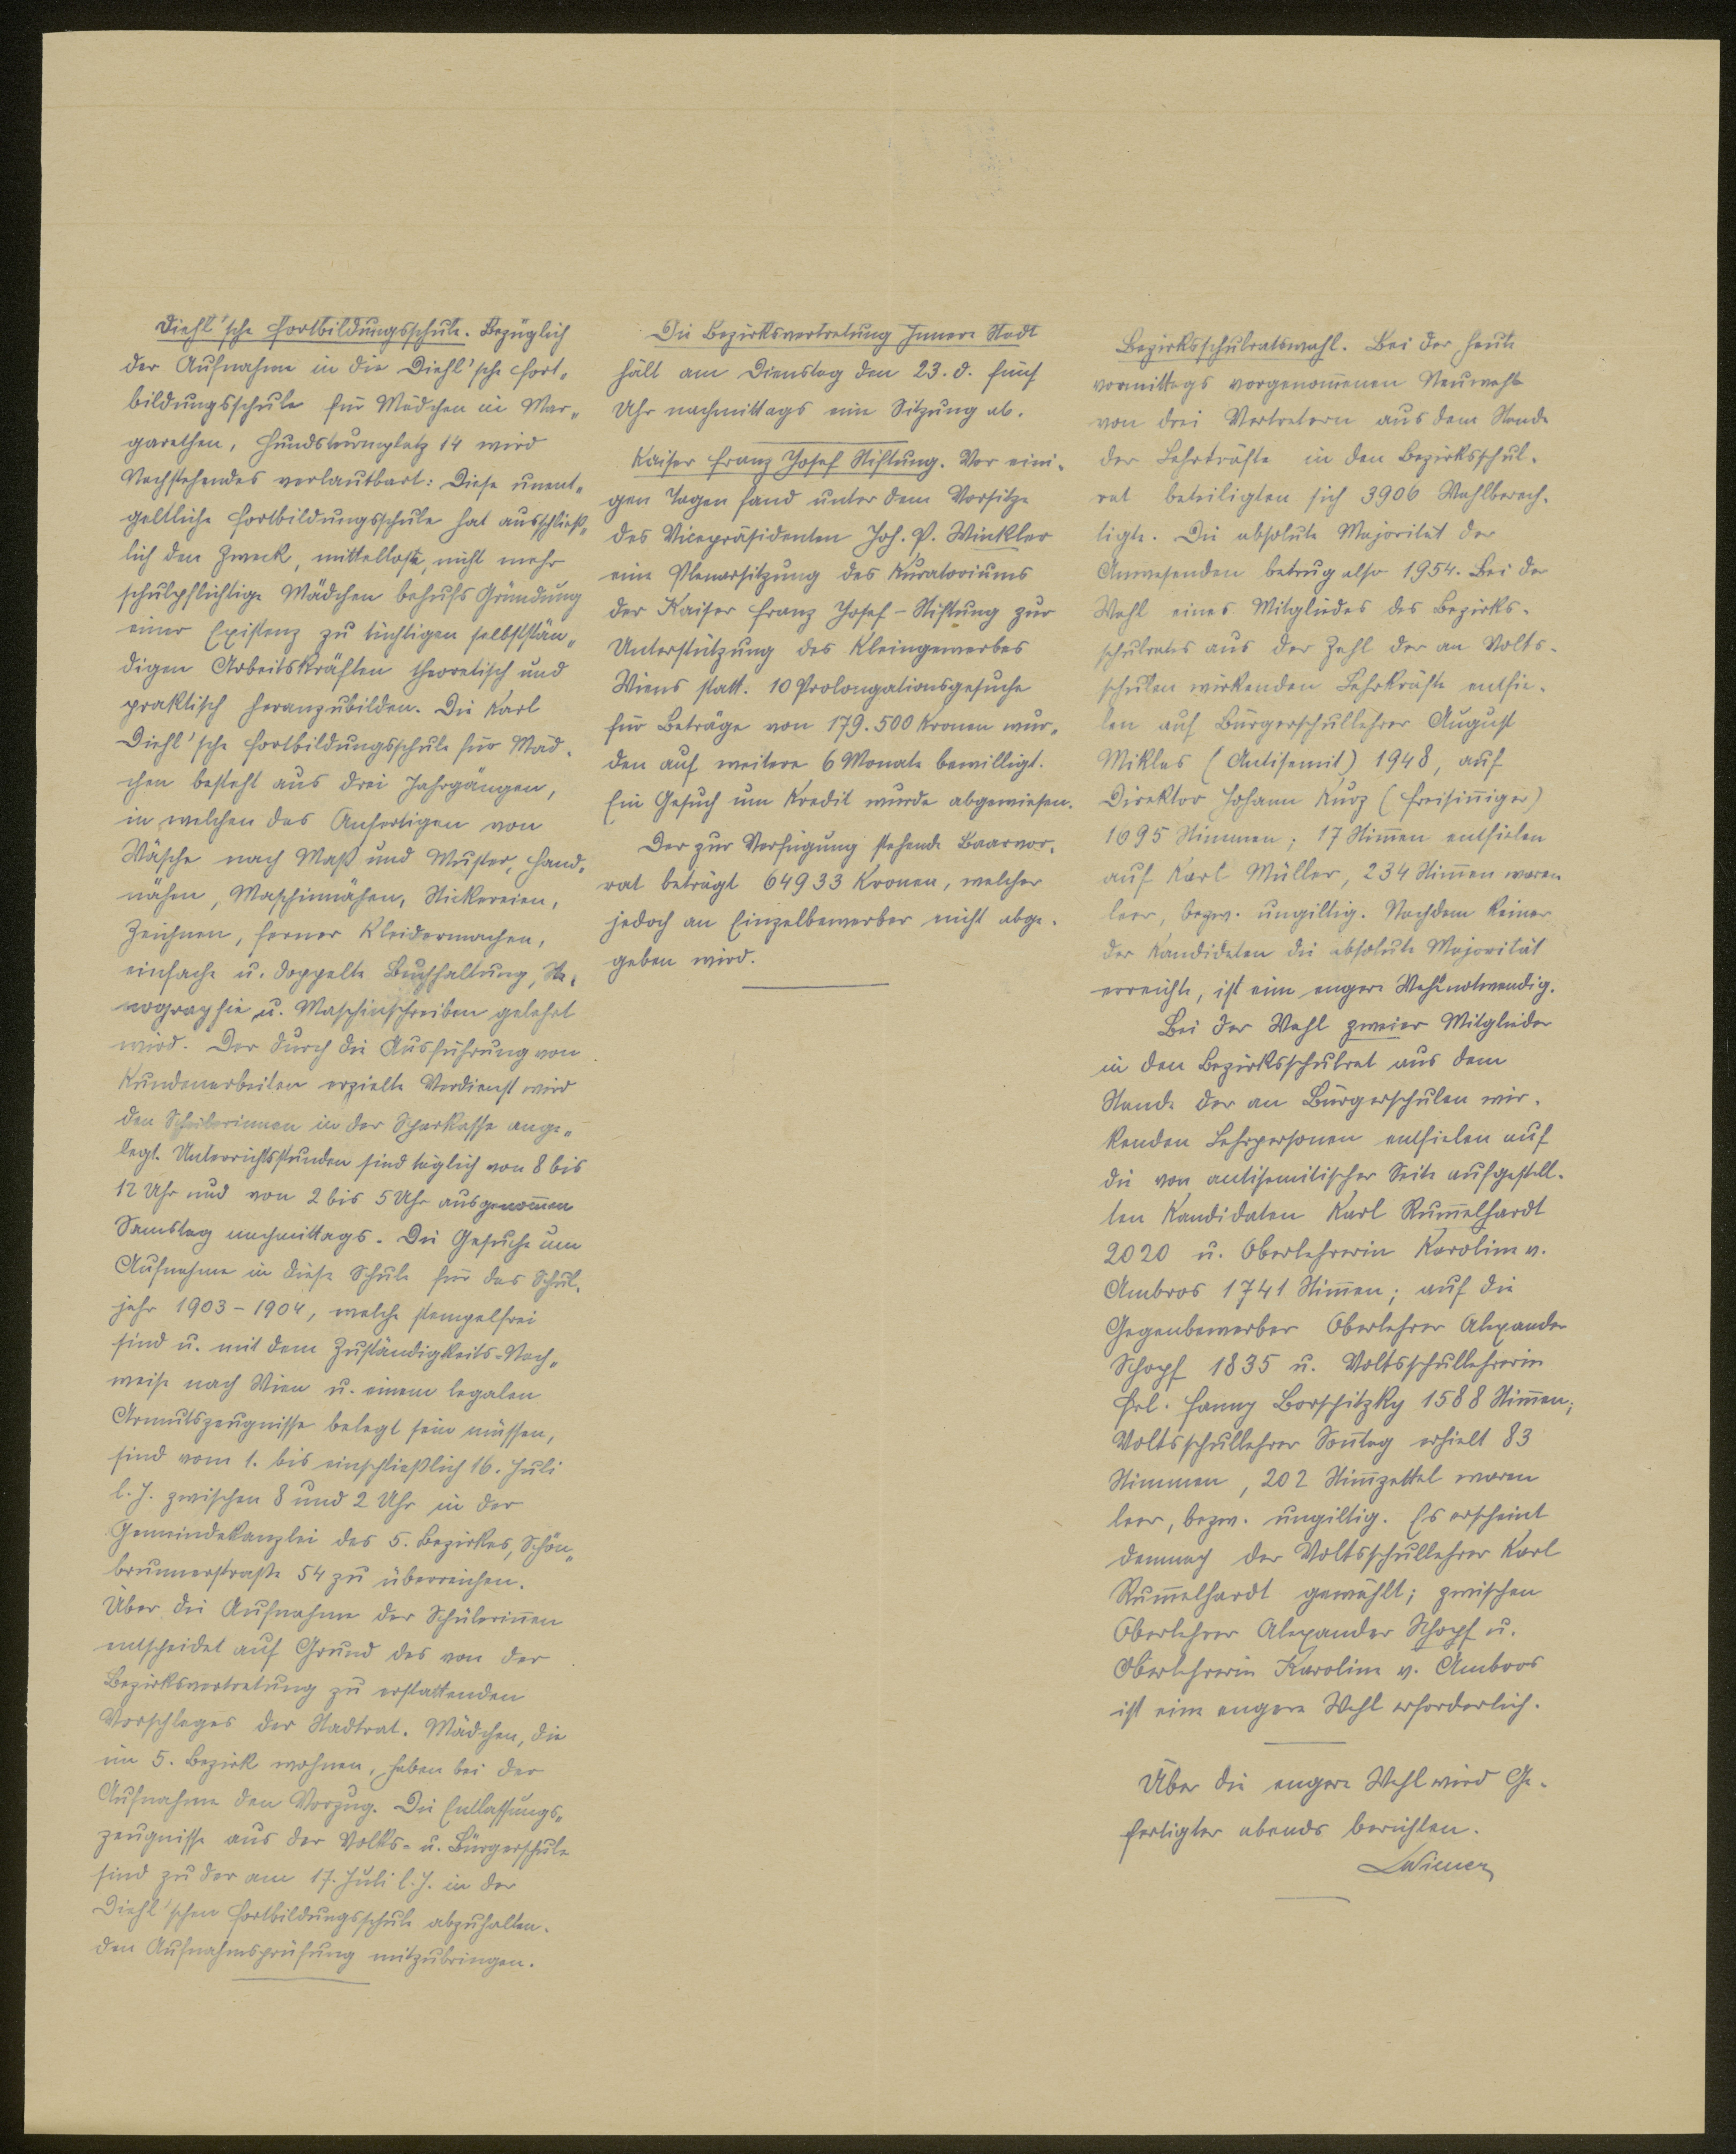 Diehl'sche Fortbildungsschule. Bezüglich
der Aufnahme in die Diehl'sche Fort„
bildungsschule für Mädchen in Mar„
garethen, Hundsturmplatz 14 wird
Nachstehendes verlautbart: Diese unent„
geltliche Fortbildungsschule hat ausschließ„
lich den Zweck, mittellose, nicht mehr
schulpflichtige Mädchen behufs Gründung
einer Existenz zu tüchtigen selbststän„
digen Arbeitskräften theoretisch und
praktisch heranzubilden. Die Karl
Diehl'sche Fortbildungsschule für Mäd-
chen besteht aus drei Jahrgängen,
in welchen das Anfertigen von
Wäsche nach Maß und Muster, Hand-
nähen, Maschinnähen, Stickereien,
Zeichnen, ferner Kleidermachen,
einfache u. doppelte Buchhaltung, Ste-
nographie u. Maschinschreiben gelehrt
wird. Der durch die Ausführung von
Kundenarbeiten erzielte Verdienst wird
den Schülerinnen in der Sparkasse ange„
legt. Unterrichtsstunden sind täglich von 8 bis
12 Uhr und von 2 bis 5 Uhr ausgenom̄en
Samstag nachmittags. Die Gesuche um
Aufnahme in diese Schule für das Schul-
jahr 1903-1904, welche stempelfrei
sind u. mit dem Zuständigkeits-Nach„
weise nach Wien u. einem legalen
Armutszeugnisse belegt sein müssen,
sind vom 1. bis einschließlich 16. Juli
l. J. zwischen 8 und 2 Uhr in der
Gemeindekanzlei des 5. Bezirkes, Schön„
brunnerstraße 54 zu überreichen.
Über die Aufnahme der Schülerin̄en
entscheidet auf Grund des von der
Bezirksvertretung zu erstattenden
Vorschlages der Stadtrat. Mädchen, die
im 5. Bezirk wohnen, haben bei der
Aufnahme den Vorzug. Die Entlassungs„
zeugnisse aus der Volks- u. Bürgerschule
sind zu der am 17. Juli l. J. in der
Diehl'schen Fortbildungsschule abzuhalten-
den Aufnahmsprüfung mitzubringen.
Die Bezirksvertretung Innere Stadt
hält am Dienstag den 23. d. fünf
Uhr nachmittags eine Sitzung ab.
Kaiser Franz Josef Stiftung. Vor eini-
gen Tagen fand unter dem Vorsitze
des Vicepräsidenten Joh. P. Winkler
eine Plenarsitzung des Kuratoriums
der Kaiser Franz Josef-Stiftung zur
Unterstützung des Kleingewerbes
Wiens statt. 10 Prolongationsgesuche
für Beträge von 179.500 Kronen wur„
den auf weitere 6 Monate bewilligt.
Ein Gesuch um Kredit wurde abgewiesen.
Der zur Verfügung stehende Baarvor-
rat beträgt 64933 Kronen, welcher
jedoch an Einzelbewerber nicht abge-
geben wird.
Bezirksschulratswahl. Bei der heute
vormittags vorgenom̄enen Neuwahl
von drei Vertretern aus dem Stande
der Lehrkräfte in den Bezirksschul-
rat beteiligten sich 3906 Wahlberech-
tigte. Die absolute Majorität der
Anwesenden betrug also 1954. Bei der
Wahl eines Mitgliedes des Bezirks-
schulrates aus der Zahl der an Volks-
schulen wirkenden Lehrkräfte entfie-
len auf Bürgerschullehrer August
Miklas (Antisemit) 1948, auf
Direktor Johann Kurz (freisin̄iger)
1695 Stimmen; 17 Stim̄en entfielen
auf Karl Müller, 234 Stim̄en waren
leer, bezw. ungiltig. Nachdem keiner
der Kandidaten die absolute Majorität
erreichte, ist eine engere Wahl notwendig.
Bei der Wahl zweier Mitglieder
in den Bezirksschulrat aus dem
Stande der an Bürgerschulen wir-
kenden Lehrpersonen entfielen auf
die von antisemitischer Seite aufgestell-
ten Kandidaten Karl Rum̄elhardt
2020 u. Oberlehrerin Karoline v.
Ambros 1741 Stim̄en; auf die
Gegenbewerber Oberlehrer Alexander
Schopf 1835 u. Volksschullehrerin
Frl. Fanny Borschitzky 1588 Stim̄en;
Volksschullehrer Son̄tag erhielt 83
Stimmen, 202 Stim̄zettel waren
leer, bezw. ungiltig. Es erscheint
demnach der Volksschullehrer Karl
Rum̄elhardt gewählt; zwischen
Oberlehrer Alexander Schopf u.
Oberlehrerin Karoline v. Ambros
ist eine engere Wahl erforderlich.
Über die engere Wahl wird Ge-
fertigter abends berichten.